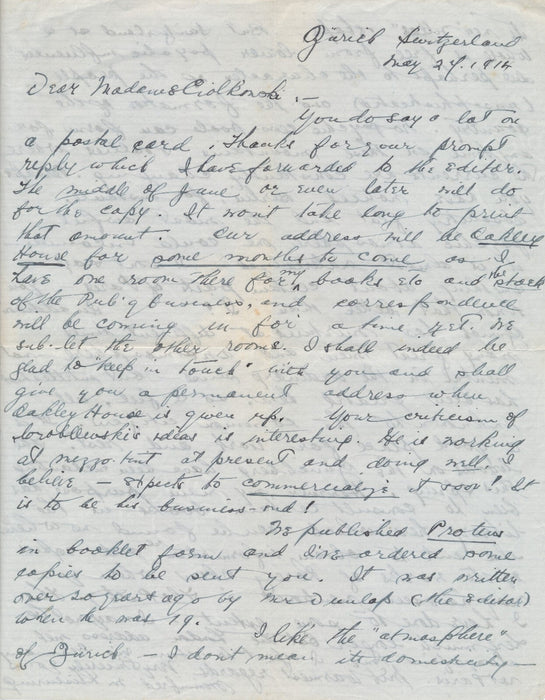 Zürich Switzerland
May 29, 1914
Dear Madame Ciolkowski:—
You do say a lot on
a postal card. Thanks for your prompt
reply which I have forwarded to the Editor.
The middle of June or even later will do
for the copy. It wont take long to print
that amount. Our address will be Oakley
House for some months to come as I
have one room there for my books etc and the stock
of the Pub'g business, and correspondence
will be coming in for a time yet. We
sub-let the other rooms. I shall indeed be
glad to "keep in touch" with you and shall
give you a permanent address when
Oakley House is given up. Your criticism of
ideas is interesting. He is working
at mezzo-tint at present and doing well. I
believe – expects to commercialize it soon! It
is to be his business-end!
We published Proteus
in booklet form and I've ordered some
copies to be sent you. It was written
over 20 years ago by Mr Dunlop (the Editor)
when he was 19.
I like the "atmosphere"
of Zürich – I don't mean its domesticity –